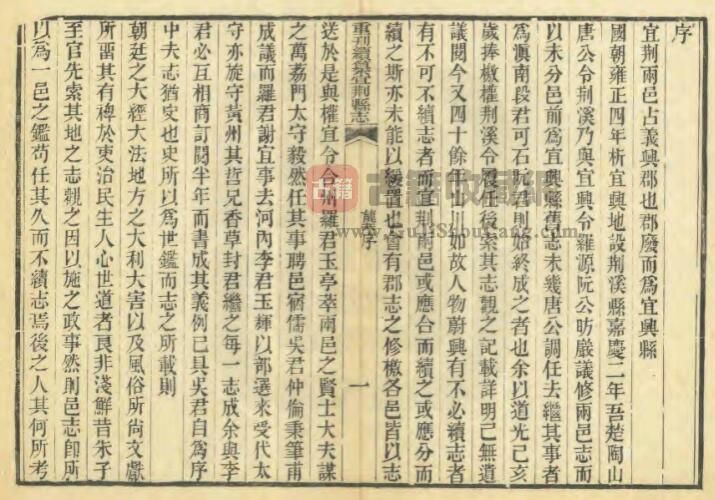 序
宜荆兩邑占義興郡也郡廢而爲宜興縣
國朝雍正四年析宜興地設荆溪縣嘉慶二年吾楚陶山
唐公令荆溪乃與宜興令羅源阮公昉嚴議修兩邑志而
以未分邑前爲宜興縣舊志未幾唐公調任去繼其事者
爲滇南段君可石阮君則始終成之者也余以道光己亥
歲捧檄權荆溪令履任後索其志觀之記載詳明已無遺
議閱今又四十餘年山川如故人物蔚興有不必續志者
有不可不續志者而宜荆兩邑或應合而續之或應分而
續之斯亦未能以緩置也會有郡志之修檄各邑皆以志
重刊續纂宜荆縣志
序
一
送於是與權宜令合州羅君玉亭萃兩邑之賢士大夫謀
之萬荔門太守毅然任其事聘邑宿儒吳君仲倫秉筆甫
成議而羅君謝宜事去河內李君玉輝以部選來受代太
守亦旋守黃州其哲兄香草封君繼之每一志成余與李
君必互相商訂閱半年而書成其義例已具吳君自爲序
中夫志猶史也史所以爲世鑑而志之所載則
朝廷之大經大法地方之大利大害以及風俗所尚文獻
所畱其有裨於吏治民生人心世道者良非淺鮮昔朱子
至官先索其地之志觀之因以施之政事然則邑志卽所
以爲一邑之鑑苟任其久而不續志焉後之人其何所考
古籍收藏網
www.GuJiShouCang.com
古籍